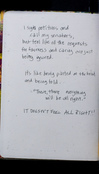 I sign petitions, and
call my senators,
but feel like all the requests
for fairness and caring are just
being ignored.
It's like being patted on the head
and being told
"There, there everything
will be all right."
IT DOESN'T FEEL ALL RIGHT!!